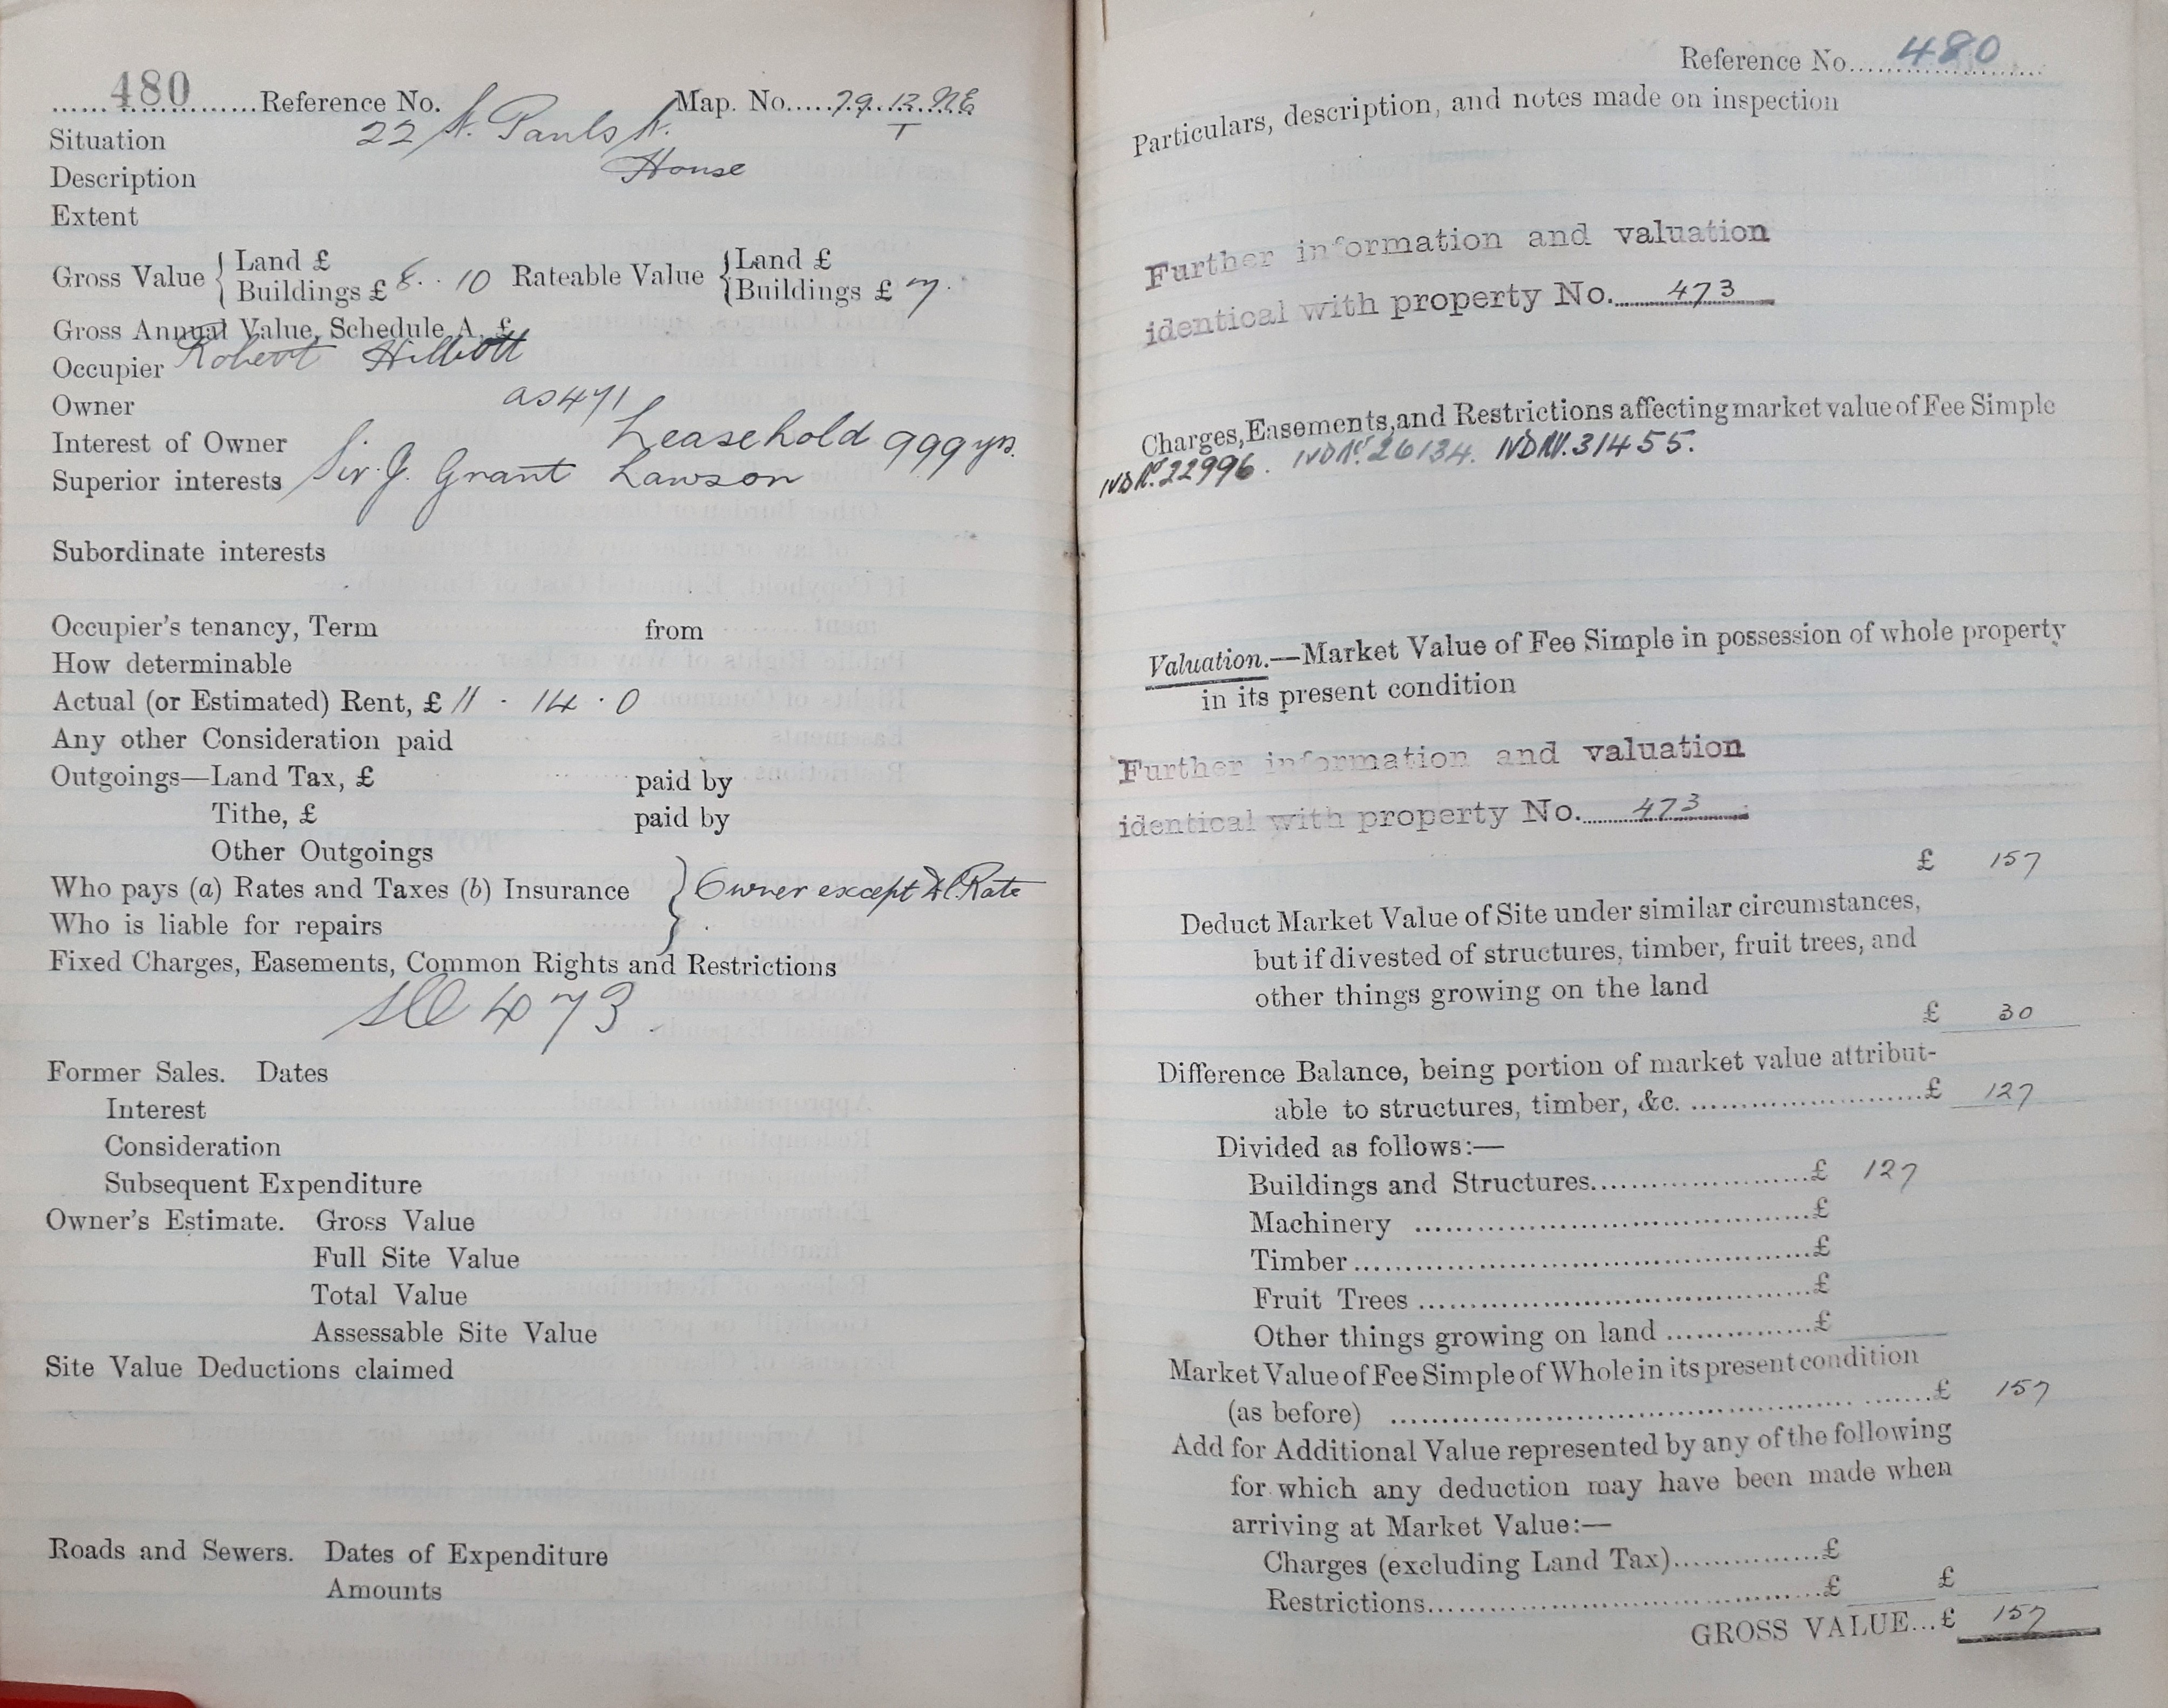 480 Reference No. Map. No. 79.12.N.E.
T
Situation 22 St. Pauls St.
Description House
Extent
Gross Value { Land £ Rateable Value { Land £
Buildings £ 8 . . 10 Buildings £ 7 .
Gross Annual Value, Schedule A, £
Occupier Robert
Owner as 471
Interest of Owner Leasehold 999 yrs.
Superior interests Sir J. Grant Lawson
Subordinate interests
Occupier's tenancy, Term from
How determinable
Actual (or Estimated) Rent, £ 11 . 14 . 0
Any other Consideration paid
Outgoings—Land Tax, £ paid by
Tithe, £ paid by
Other Outgoings
Who pays (a) Rates and Taxes (b) Insurance } Owner except Rate
Who is liable for repairs
Fixed Charges, Easements, Common Rights and Restrictions
473
Former Sales. Dates
Interest
Consideration
Subsequent Expenditure
Owner's Estimate. Gross Value
Full Site Value
Total Value
Assessable Site Value
Site Value Deductions claimed
Roads and Sewers. Dates of Expenditure
Amounts
Reference No. 480
Particulars, description, and notes made on inspection
Further information and valuation
identical with property No. 473
Charges, Easements, and Restrictions affecting market value of Fee Simple
IVD No. 22996. IVD No. 26134. IVD No. 31455.
Valuation.—Market Value of Fee Simple in possession of whole property
in its present condition
Further information and valuation
identical with property No. 473
£ 157
Deduct Market Value of Site under similar circumstances,
but if divested of structures, timber, fruit trees, and
other things growing on the land
£ 30
Difference Balance, being portion of market value attribut-
able to structures, timber, &c. £ 127
Divided as follows:—
Buildings and Structures £ 127
Machinery £
Timber £
Fruit Trees £
Other things growing on land £
Market Value of Fee Simple of Whole in its present condition
(as before) £ 157
Add for Additional Value represented by any of the following
for which any deduction may have been made when
arriving at Market Value:—
Charges (excluding Land Tax) £
Restrictions £ £
GROSS VALUE...£ 157